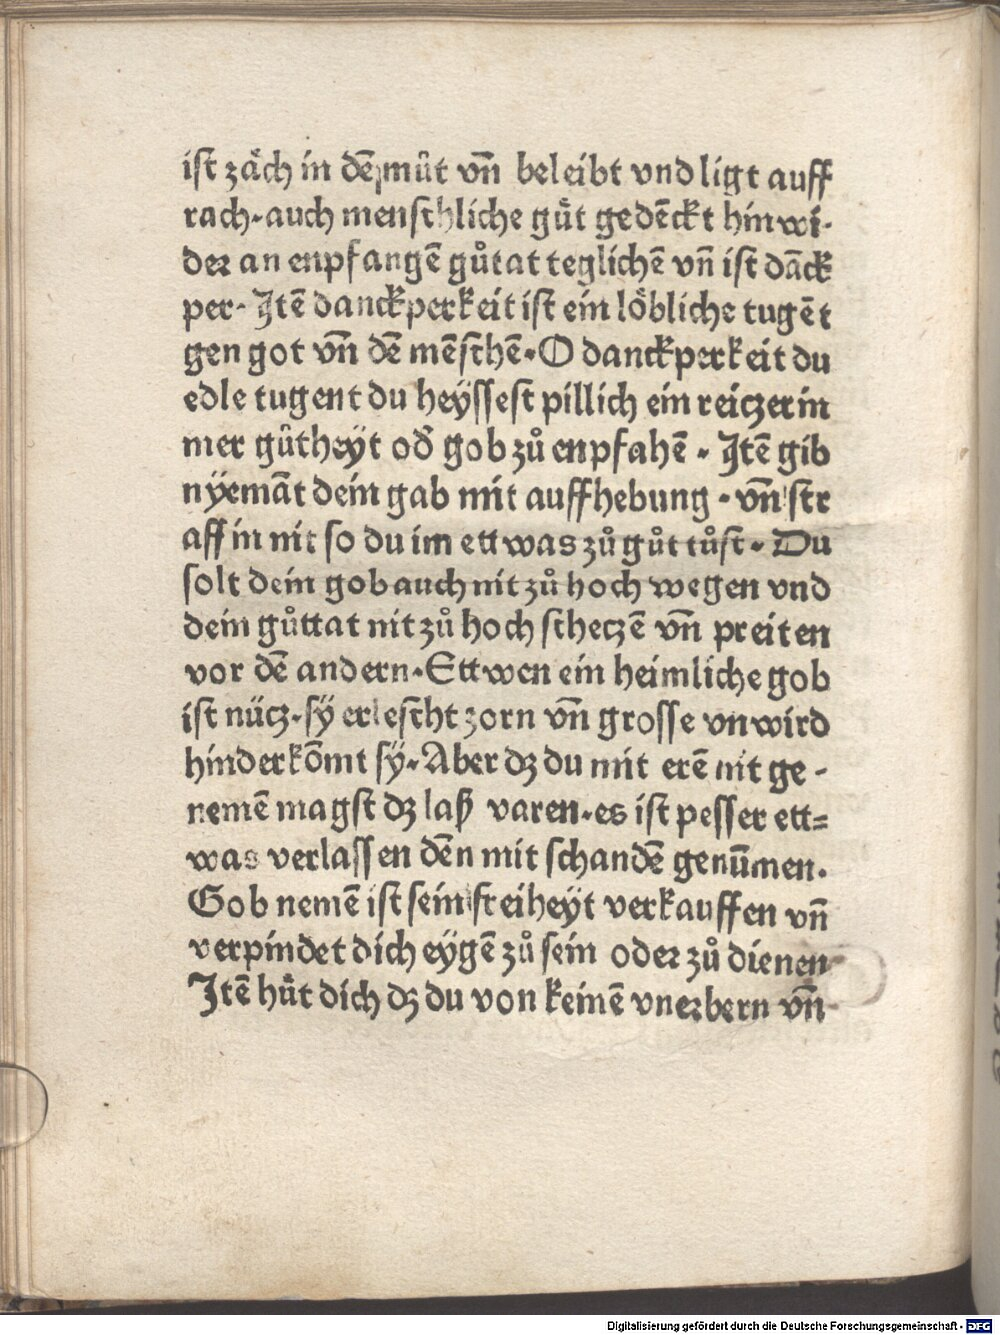 ist zäch in dē můt vn̄ beleibt vnd ligt auff
rach·auch menschliche gůt gedēckt hinwi-
der an enpfangē gůtat teglichē vn̄ ist dāck
per· Itē danckperkeit ist ein löbliche tugēt
gen got vn̄ dē mēschē·O danckperkeit du
edle tugent du heÿssest pillich ein reiczerin
mer gůtheÿt od̄ gob zů enpfahē · Itē gib
nÿemāt dein gab mit auffhebung · vn̄ str
aff in nit so du im ettwas zů gůt tůst· Du
solt dein gob auch nit zů hoch wegen vnd
dein gůttat nit zů hoch scheczē vn̄ preiten
vor dē andern·Ettwen ein heimliche gob
ist nücz·sÿ erlescht zorn vn̄ grosse vnwird
hinderkōmt sÿ·Aber dʒ du mit erē nit ge-
nemē magst dʒ laß varen·es ist pesser ett=
was verlassen dēn mit schandē genūmen.
Gob nemē ist sein freiheÿt verkauffen vn̄
verpindet dich eÿgē zů sein oder zů dienen
Itē hůt dich dʒ du von keinē vnerbern vn̄
Digitalisierung gefördert durch die Deutsche Forschungsgemeinschaft - DFG